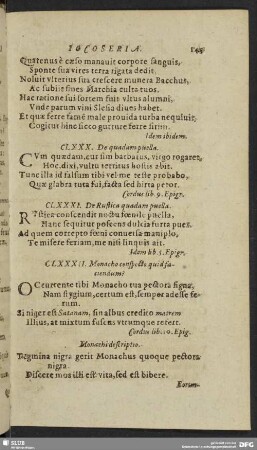 IOCOSERIA.
Quatenus è cæso manauit corpore sanguis,
Sponte sua vites terra rigata dedit.
Noluit vlterius sua crescere munera Bacchus,
Ac subijt fines Marchia culta tuos.
Hac ratione sui sortem fuit vltus alumni,
Vnde parum vini Slesia diues habet.
Et quæ ferre famē male prouida turba nequiuit,
Cogitur hinc sicco gutture ferre sitim.
Idem ibidem.
CLXXX. De quadam puella.
CVm quædam, cur sim barbatus, virgo rogaret,
Hoc, dixi, vultu territus hostis abit.
Tunc illa id falsum tibi vel me teste probabo,
Quæ glabra tuta fui, facta sed hirta petor.
Cordus lib. 9. Epigr.
CLXXXI. De Rustica quadam puella.
RVstica conscendit noctu fœnile puella.
Hanc sequitur poscens dulcia furta pues.
Ad quem correpto fœni conuersa maniplo,
Te misere feriam, me nisi linquis ait.
Idem lib. 9. Epigr.
CLXXXII. Monacho conspecto quid faciendum?
OCcurrente tibi Monacho tua pectora signa,
Nam stygium, certum est, semper adesse ferum.
Si niger est Satanam, sin albus credito matrem
Illius, at mixtum fuscus vtrumque refert.
Cordus lib. 10. Epig.
Monachi descriptio.
Tegmina nigra gerit Monachus quoque pectora
nigra.
Discere mos illi est vita, sed est bibere.
Eorum-
SLUB
DFG